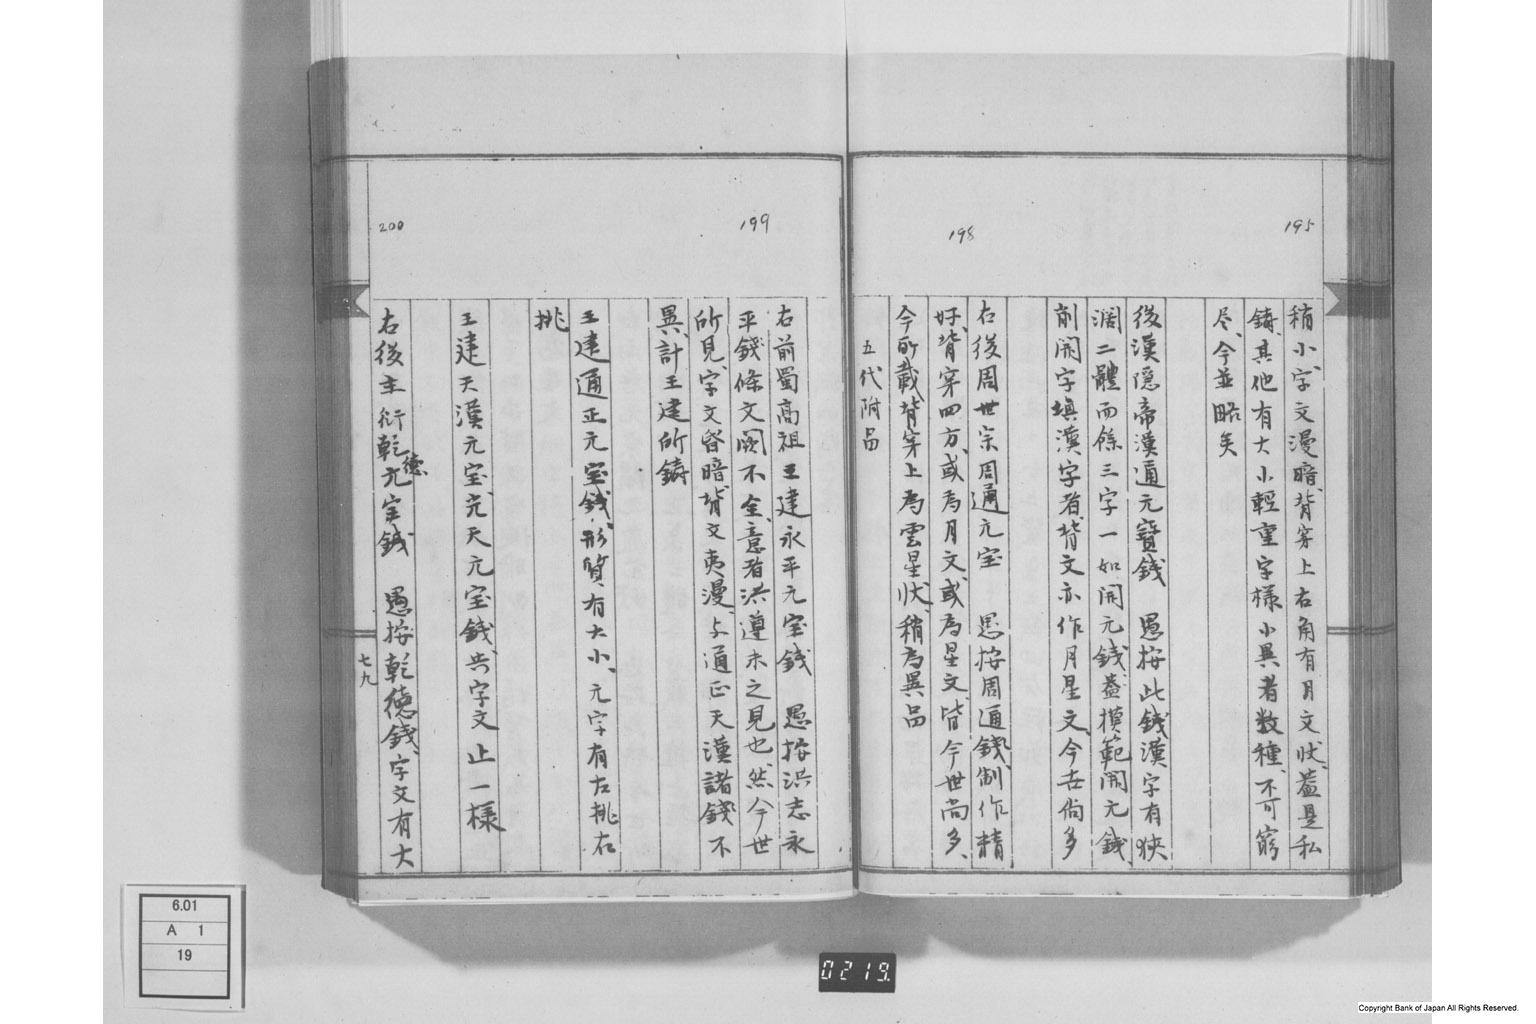 195
稍小、字文漫暗、背穿上右角有月文状、蓋是私
鋳、其他有大小軽重字様小異者数種、不可窮
尽、今並略矣
後漢隠帝漢通元寶銭　愚按此銭漢字有狭
濶二體而餘三字一如開元銭、蓋摸範開元銭、
削開字填漢字者、背文亦作月星文、今世尚多
198
右後周世宗周通元宝　愚按周通銭制作精
好、背穿四方、或為月文、或為星文、皆今世尚多、
今所載背穿上為雲星状、稍為異品
五代附品
199
右前蜀高祖王建永平元宝銭　愚按洪志永
平銭條文闕不全、意者洪遵未之見也、然今世
所見、字文昏暗、背文夷漫、与通正天漢諸銭不
異、計王建所鋳
王建通正元宝銭、形質有大小、元字有左挑右
挑
王建天漢元宝光天元宝銭、共字文止一様
200
右後主衍乾德元宝銭　愚按乾徳銭、字文有大
七九
6.01
A 1
19
0219
Copyright Bank of Japan All Rights Reserved.